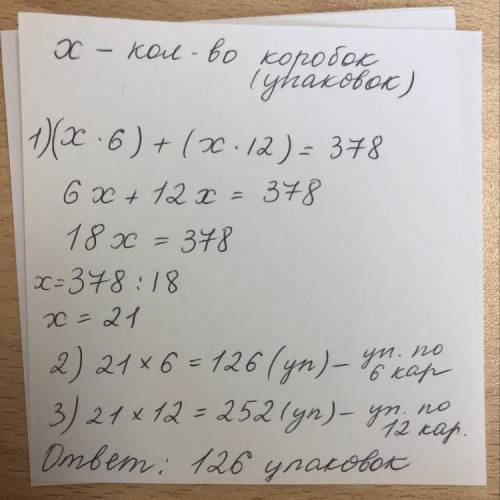 х – кол-во коробок
(упаковок)
1)(х · 6) + (х · 12) = 378
6х + 12х = 378
18х = 378
х = 378 : 18
х = 21
2) 21 × 6 = 126 (уп) – уп. по
6 кар
3) 21 × 12 = 252 (уп) – уп. по
12 кар.
Ответ: 126 упаковок